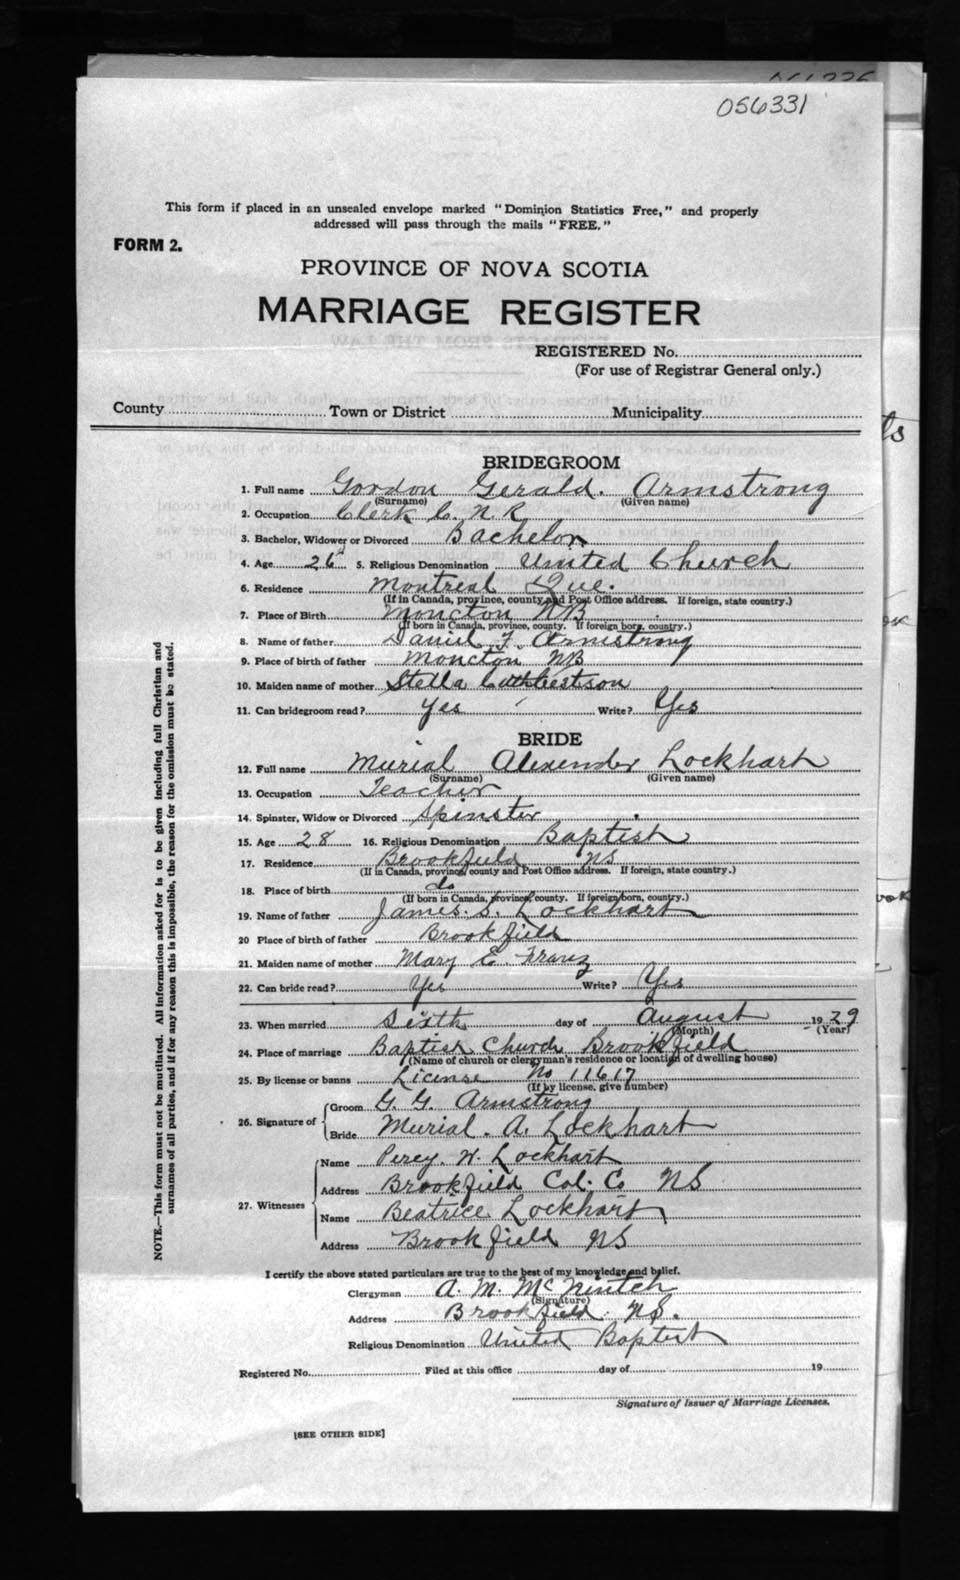 056331
This form if placed in an unsealed envelope marked "Dominion Statistics Free," and properly
addressed will pass through the mails "FREE."
FORM 2.
PROVINCE OF NOVA SCOTIA
MARRIAGE REGISTER
REGISTERED No.
(For use of Registrar General only.)
County Town or District Municipality
BRIDEGROOM
1. Full name Gordon Gerald. Armstrong
(Surname) (Given name)
2. Occupation Clerk C. N. R
3. Bachelor, Widower or Divorced Bachelor
4. Age 26 5. Religious Denomination United Church
6. Residence Montreal Que.
(If in Canada, province, county and Post Office address. If foreign, state country.)
7. Place of Birth Moncton NB
(If born in Canada, province, county. If foreign born, country.)
8. Name of father Daniel F. Armstrong
9. Place of birth of father Moncton NB
10. Maiden name of mother Stella Cuthbertson
11. Can bridegroom read? Yes Write? Yes
BRIDE
12. Full name Murial Alexender Lockhart
(Surname) (Given name)
13. Occupation Teacher
14. Spinster, Widow or Divorced Spinster
15. Age 28 16. Religious Denomination Baptist
17. Residence Brookfield NS
(If in Canada, province, county and Post Office address. If foreign, state country.)
18. Place of birth do
(If born in Canada, province, county. If foreign born, country.)
19. Name of father James. S. Lockhart
20 Place of birth of father Brookfield
21. Maiden name of mother Mary E. Franz
22. Can bride read? Yes Write? Yes
23. When married Sixth day of August 1929
(Month) (Year)
24. Place of marriage Baptist Church Brookfield
(Name of church or clergyman's residence or location of dwelling house)
25. By license or banns License No 11617
(If by license, give number)
26. Signature of Groom G. G. Armstrong
Bride Murial. A. Lockhart
27. Witnesses Name Percy. W. Lockhart
Address Brookfield Col. Co NS
Name Beatrice Lockhart
Address Brookfield NS
I certify the above stated particulars are true to the best of my knowledge and belief.
Clergyman A. M. McNintch
(Signature)
Address Brookfield. NS.
Religious Denomination United Baptist
Registered No. Filed at this office day of 19
Signature of Issuer of Marriage Licenses.
[SEE OTHER SIDE]
NOTE.—This form must not be mutilated. All information asked for is to be given including full Christian and
surnames of all parties, and if for any reason this is impossible, the reason for the omission must be stated.